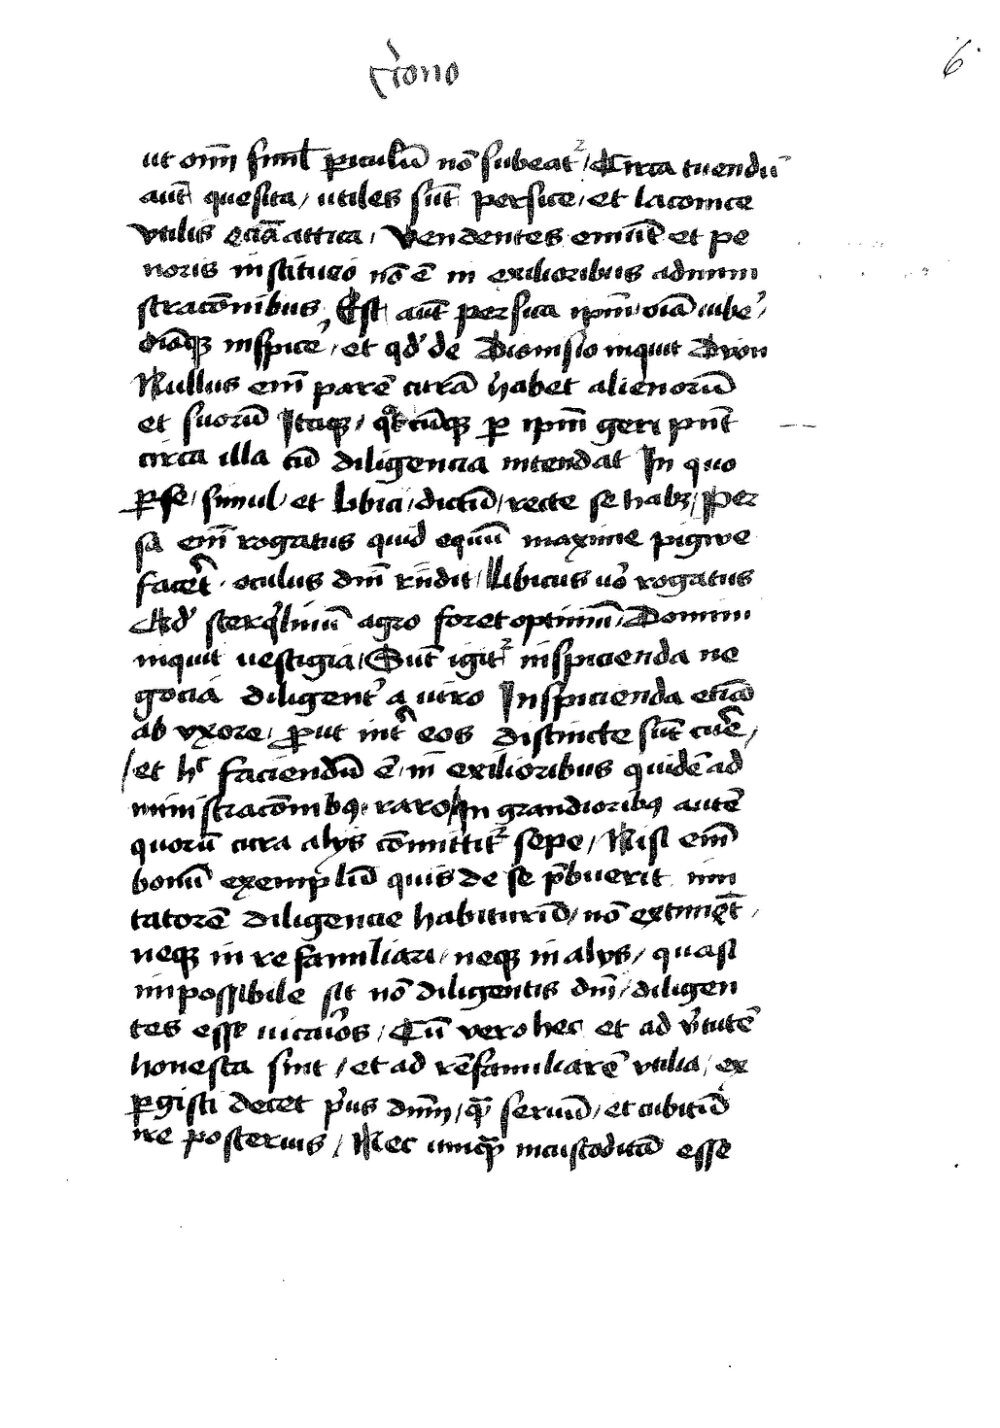 6
ut om̄ī simł ꝑiculū nō subeat᷑ / Circa tuendū
aut̄ quesita / utiles sūt persice / et laconice
Vtilis eciā attica / Vendentes emūt et pe
noris institucō nō ē in exilioribus admini
stracōnibus, Est aut̄ persica ipm̄ oīa iube᷑ /
oīaqꝫ inspice᷑ / et qd᷑ de Dionisio inquit Dion
Nullus em̄ parē curā habet alienorū
et suorū Itaqꝫ / qͣcūqꝫ ꝑ ipm̄ geri pn̄t
circa illa cū diligencia intendat In quo
ꝑse / simul / et libici / dictū / recte se habꝫ / Per
sa em̄ rogatus quid equū maxime pigwe
facer̄t · oculus dn̄i rn̄dit / Libicus uo᷑ rogatus
Qd᷑ sterq̇liniū agro foret optimū / Domini
inquit uestigia / Sūt igit᷑ inspicienda ne
gocia diligent᷑ a uiro Inspicienda eciā
ab vxore / ꝓut int᷑ eos distincte sūt cur̄e /
/ et hͨ faciendū ē / in exilioribus quidē ad
ministracōnibꝯ / raro / In grandioribꝯ autē
quorū cura alijs cōmittit᷑ sepe / Nisi em̄
bonū exemplū quis de se p̄buerit imi
tatorē diligencie habiturū / nō extimet̄ /
neqꝫ in re familiari / neqꝫ in alijs / quasi
impossibile sit nō diligentis dn̄i / diligen
tes esse uicarios / Cū vero hec et ad v᷑tutē
honesta sint / et ad rē familiarē vtilia / ex
ꝑgisci decet p᷑us dnm̄ / qꝫ̄ seruū / et cubitū
ire posterius / Nec unqꝫ̄ incustoditā esse